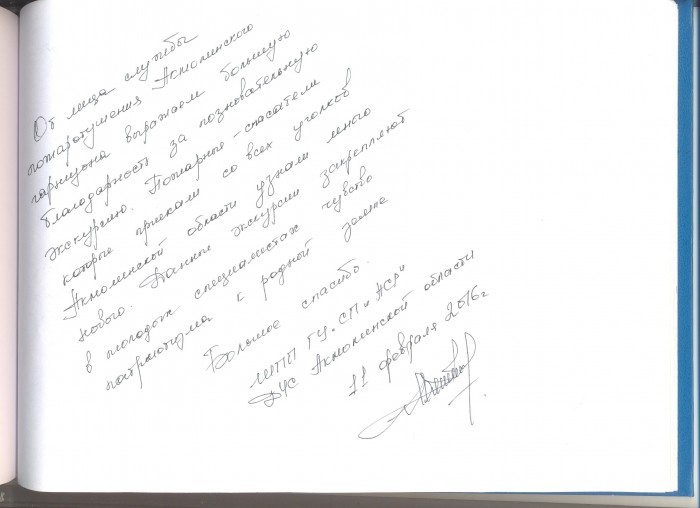 От лица службы
пожаротушения Акмолинского
гарнизона выражаем большую
благодарность за познавательную
экскурсию. Пожарные-спасатели
которые приехали со всех уголков
Акмолинской области узнали много
нового. Данные экскурсии закрепляют
в молодых специалистах чувство
патриотизма к родной земле
Большое спасибо.
ИПП ГУ "СП и АСР"
ДЧС Акмолинской области
11 февраля 2016г